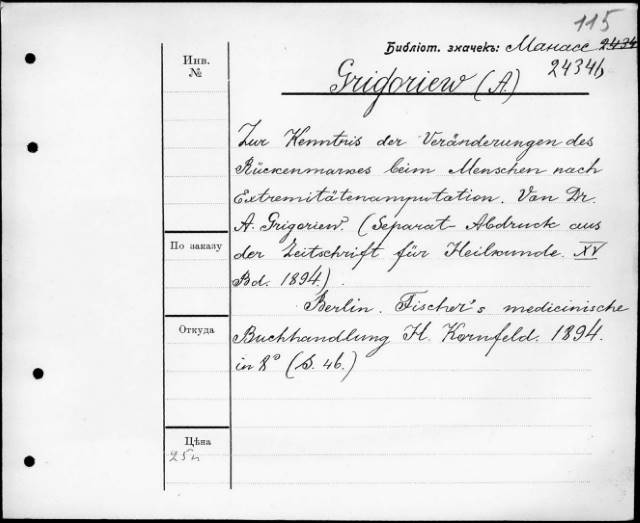 115
Библіот. значекъ: Манасс 2434
24346
Инв.
№
Grigoriew (A.)
Zur Kenntnis der Veränderungen des
Rückenmarkes beim Menschen nach
Extremitätenamputation. Von Dr.
A. Grigoriew. (Separat-Abdruck aus
По заказу
der Zeitschrift für Heilkunde. XV
Bd. 1894.)
Berlin. Fischer's medicinische
Откуда
Buchhandlung H. Kornfeld. 1894.
in 8° (S. 46.)
Цѣна
25к